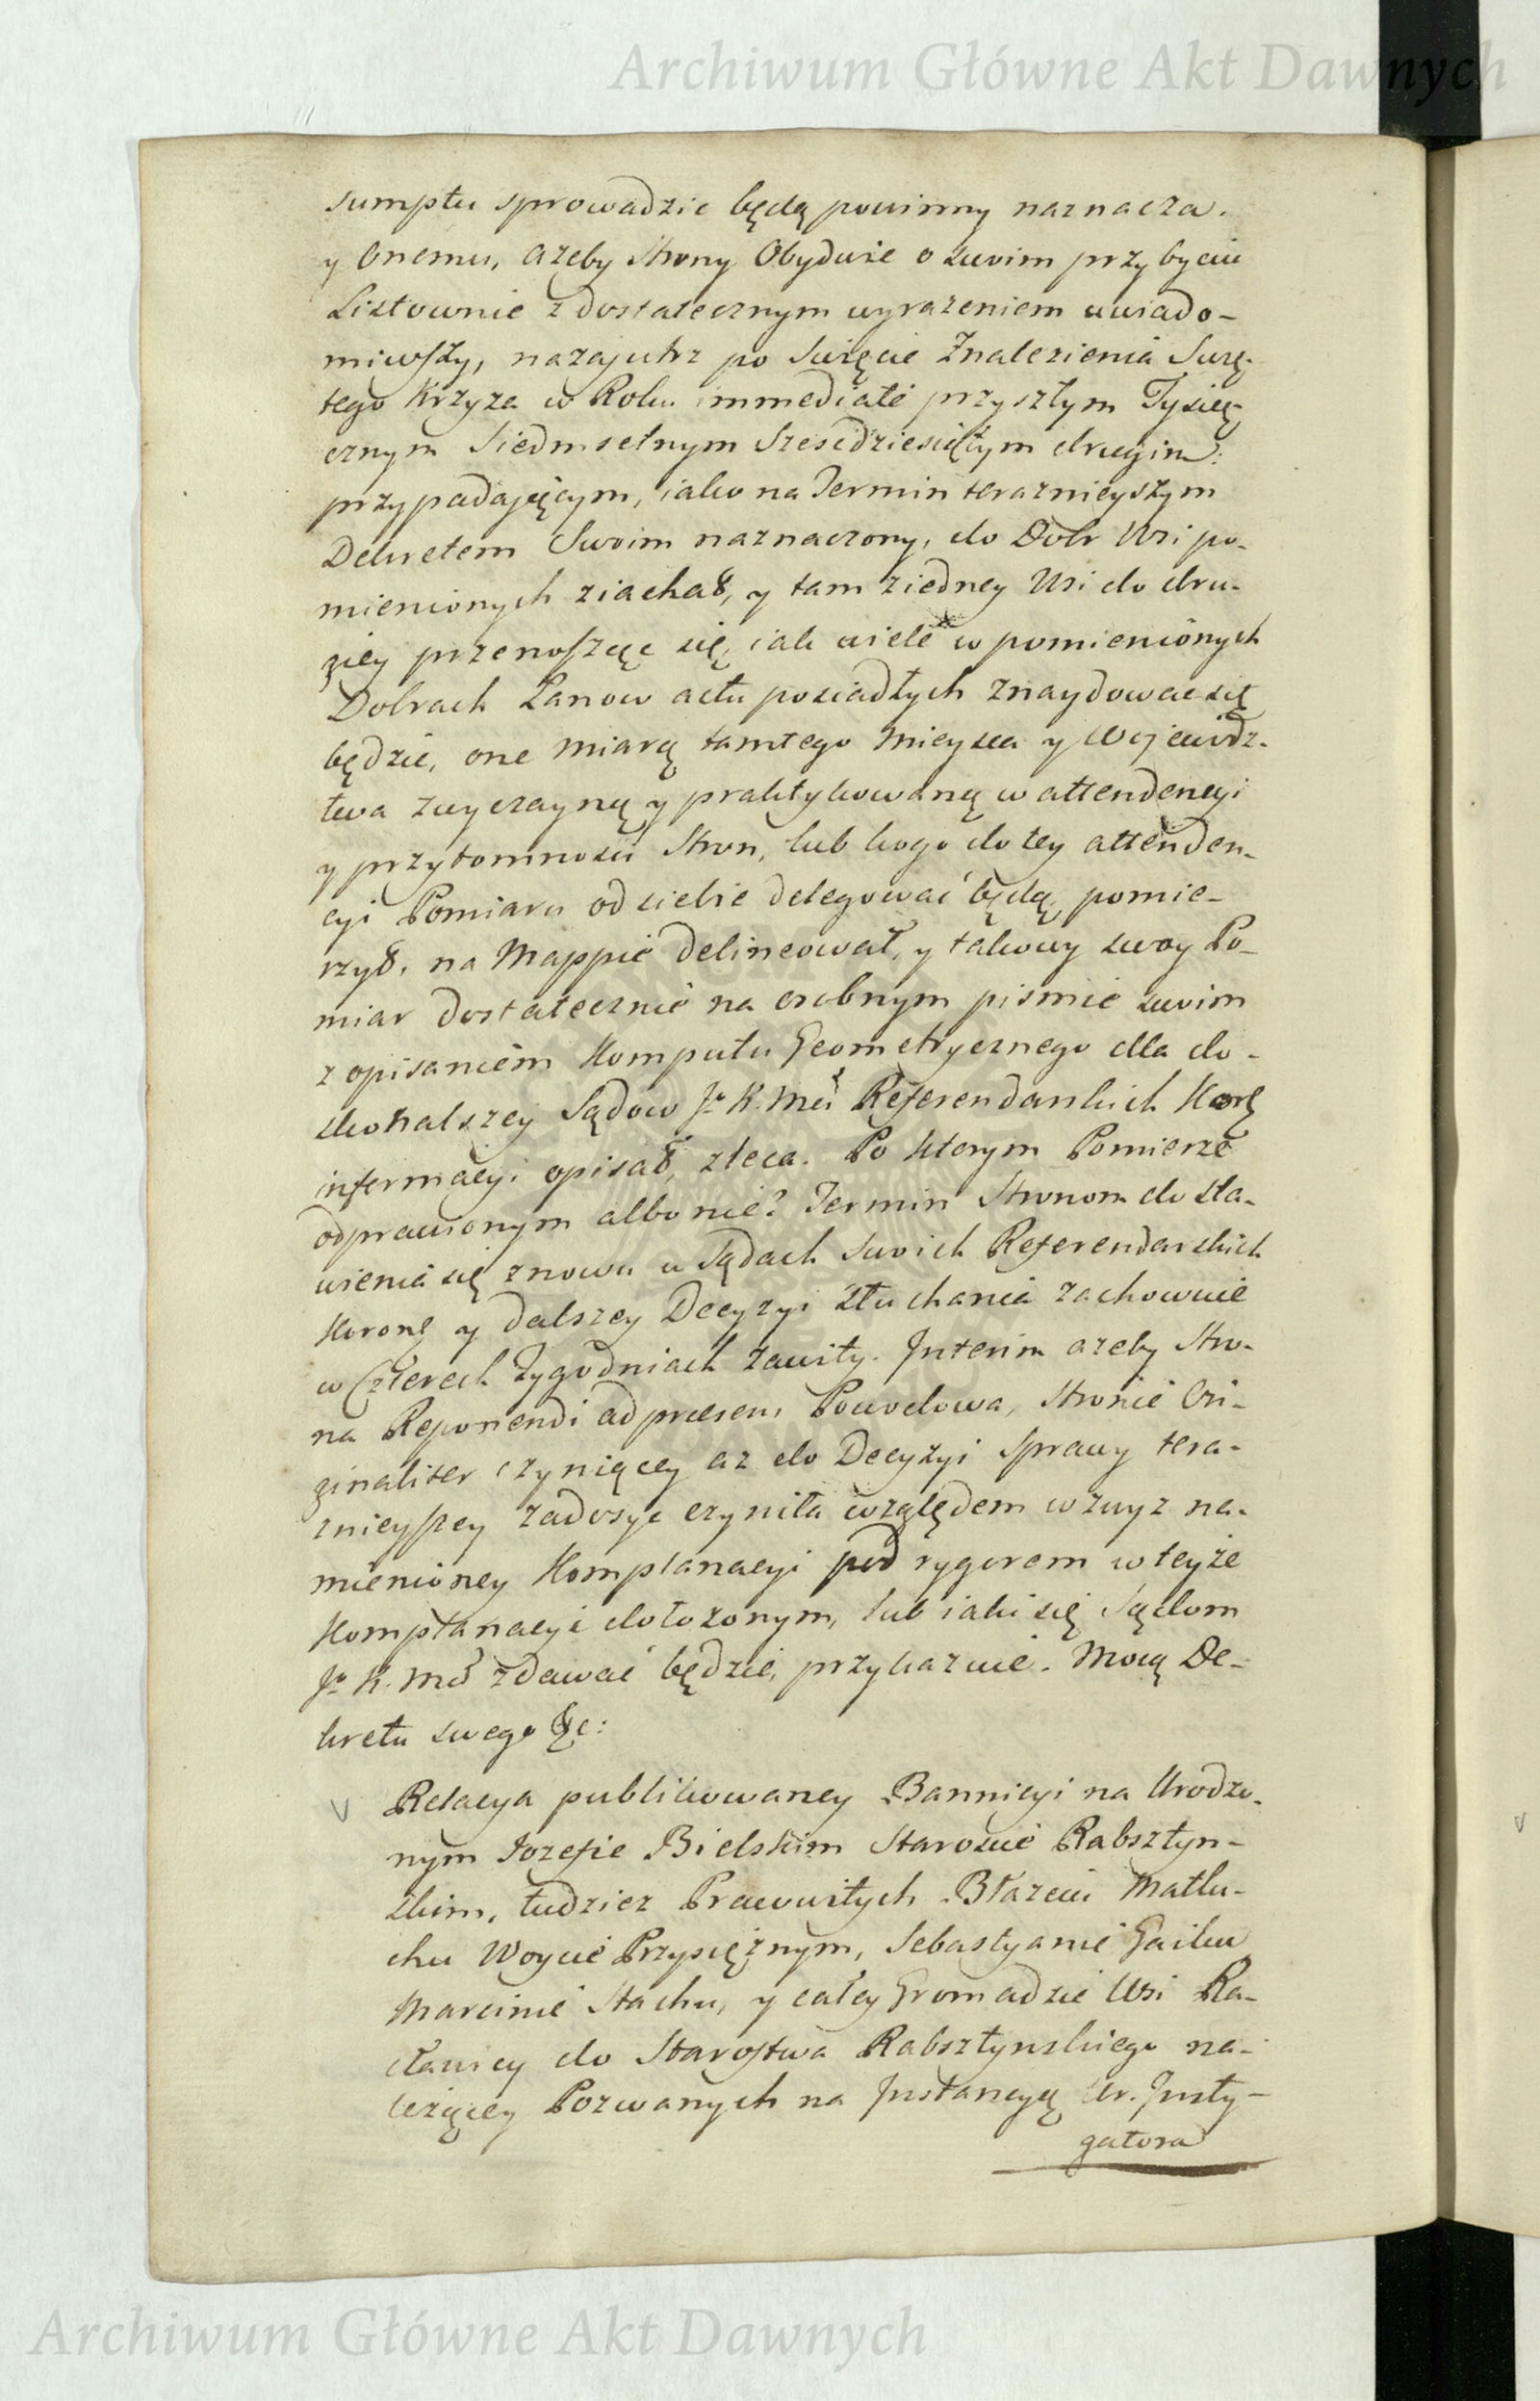 Archiwum Główne Akt Dawnych
sumptu sprowadzic będą powinny naznacza.
y onemu, azeby Strony Obydwie o swoim przybyciu
Listownie z dostatecznym wyrazeniem uwiado-
miwszy, nazajutrz po Swięcie Znalezienia Swię-
tego Krzyza w Roku immediate przyszłym Tysią-
cznym Siedmsetnym Szescdziesiątym drugim:
przypadającym, iako na Termin teraznieyszym
Dekretem Swoim naznaczony, do Dobr Wsi po-
mienionych ziachał, y tam ziedney Wsi do dru-
giey przenosząc się, iak wiele w pomienionych
Dobrach Łanow actu posiadłych znaydowac się
będzie, one miarą tamtego mieysca y Wojewodz-
twa zwyczayną y praktykowaną w attendencyi
y przytomnosci Stron, lub kogo do tey attenden-
cyi Pomiaru od siebie delegować będą, pomie-
rzył, na Mappie delineował, y takowy swoy Po-
miar dostatecznie na osobnym pismie swoim
z opisaniem Komputu Geometrycznego dla do-
skonalszey Sądow Jº K. Mci Referendarskich Korᵉ
informacyi opisał, zleca. Po ktorym Pomierze
odprawionym albo nie? Termin Stronom do sta-
wienia się znowu w Sądach Swoich Referendarskich
Koronᵉ y dalszey Decyzyi słuchania zachowuie
w Czterech Tygodniach zawity. Interim azeby Stro-
na Reponendi ad praesens Powodowa, Stronie Ori-
ginaliter czyniącey az do Decyzyi Sprawy tera-
znieyszey zadosyc czyniła względem w zwyz na-
mienioney Komplanacyi pod rygorem w teyże
Komplanacyi dołozonym, lub iaki się Sądom
Jº K. Mci zdawać będzie, przykazuie. Mocą De-
kretu swego &c:
Relacya publikowaney Bannicyi na Urodzo-
nym Jozefie Bielskim Staroscie Rabsztyn-
skim, tudziez Pracowitych Błazeiu Matlu-
chu Woycie Przysięznym, Sebastyanie Gaiku
Marcinie Stachu, y całey Gromadzie Wsi Ra-
cławicy do Starostwa Rabsztynskiego na-
lezącey Pozwanych na Instancyą Ur. Insty-
gatora
Archiwum Główne Akt Dawnych